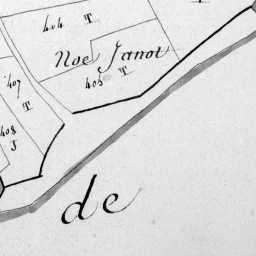 404 T
Noe Janot
405 T
407
T
408
J
de